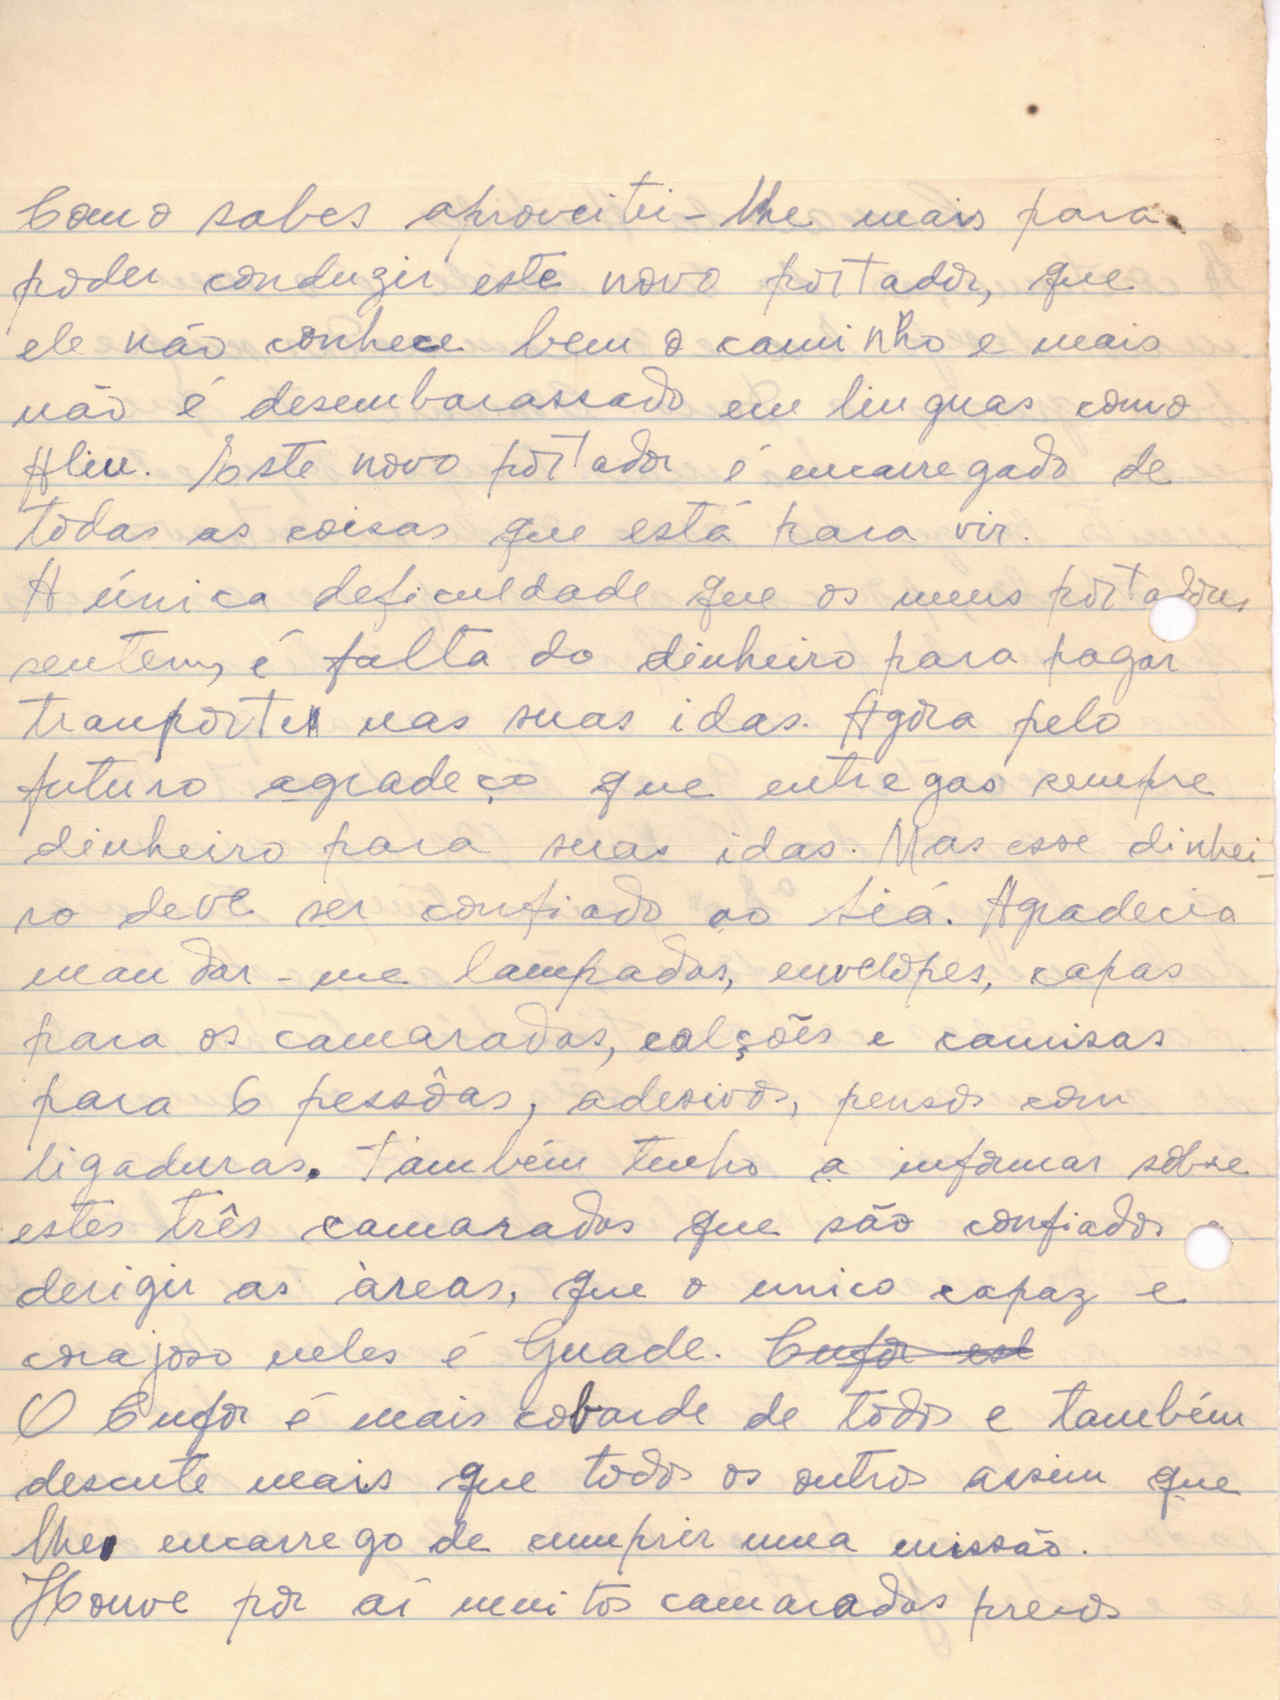 Como sabes aproveitei-lhe mais para
poder conduzir este novo portador, que
ele não conhece bem o caminho e mais
não é desembarassado em linguas como
Aliu. Este novo portador é encarregado de
todas as coisas que está para vir.
A única deficuldade que os meus portadores
sentem, é falta do dinheiro para pagar
tranporte nas suas idas. Agora pelo
futuro agradeço que entregas sempre
dinheiro para suas idas. Mas esse dinhei-
ro deve ser confiado ao Siá. Agradecia
mandar-me lampadas, envelopes, capas
para os camaradas, calções e camisas
para 6 pessôas, adesivos, pensos com
ligaduras. Também tenho a informar sobre
estes três camaradas que são confiados
derigir as àreas, que o unico capaz e
corajoso neles é Guade. Cufor est
O Cufor é mais cobarde de todos e também
descute mais que todos os outros assim que
lhe encarrego de cumprir uma missão.
Houve por aí muitos camaradas presos